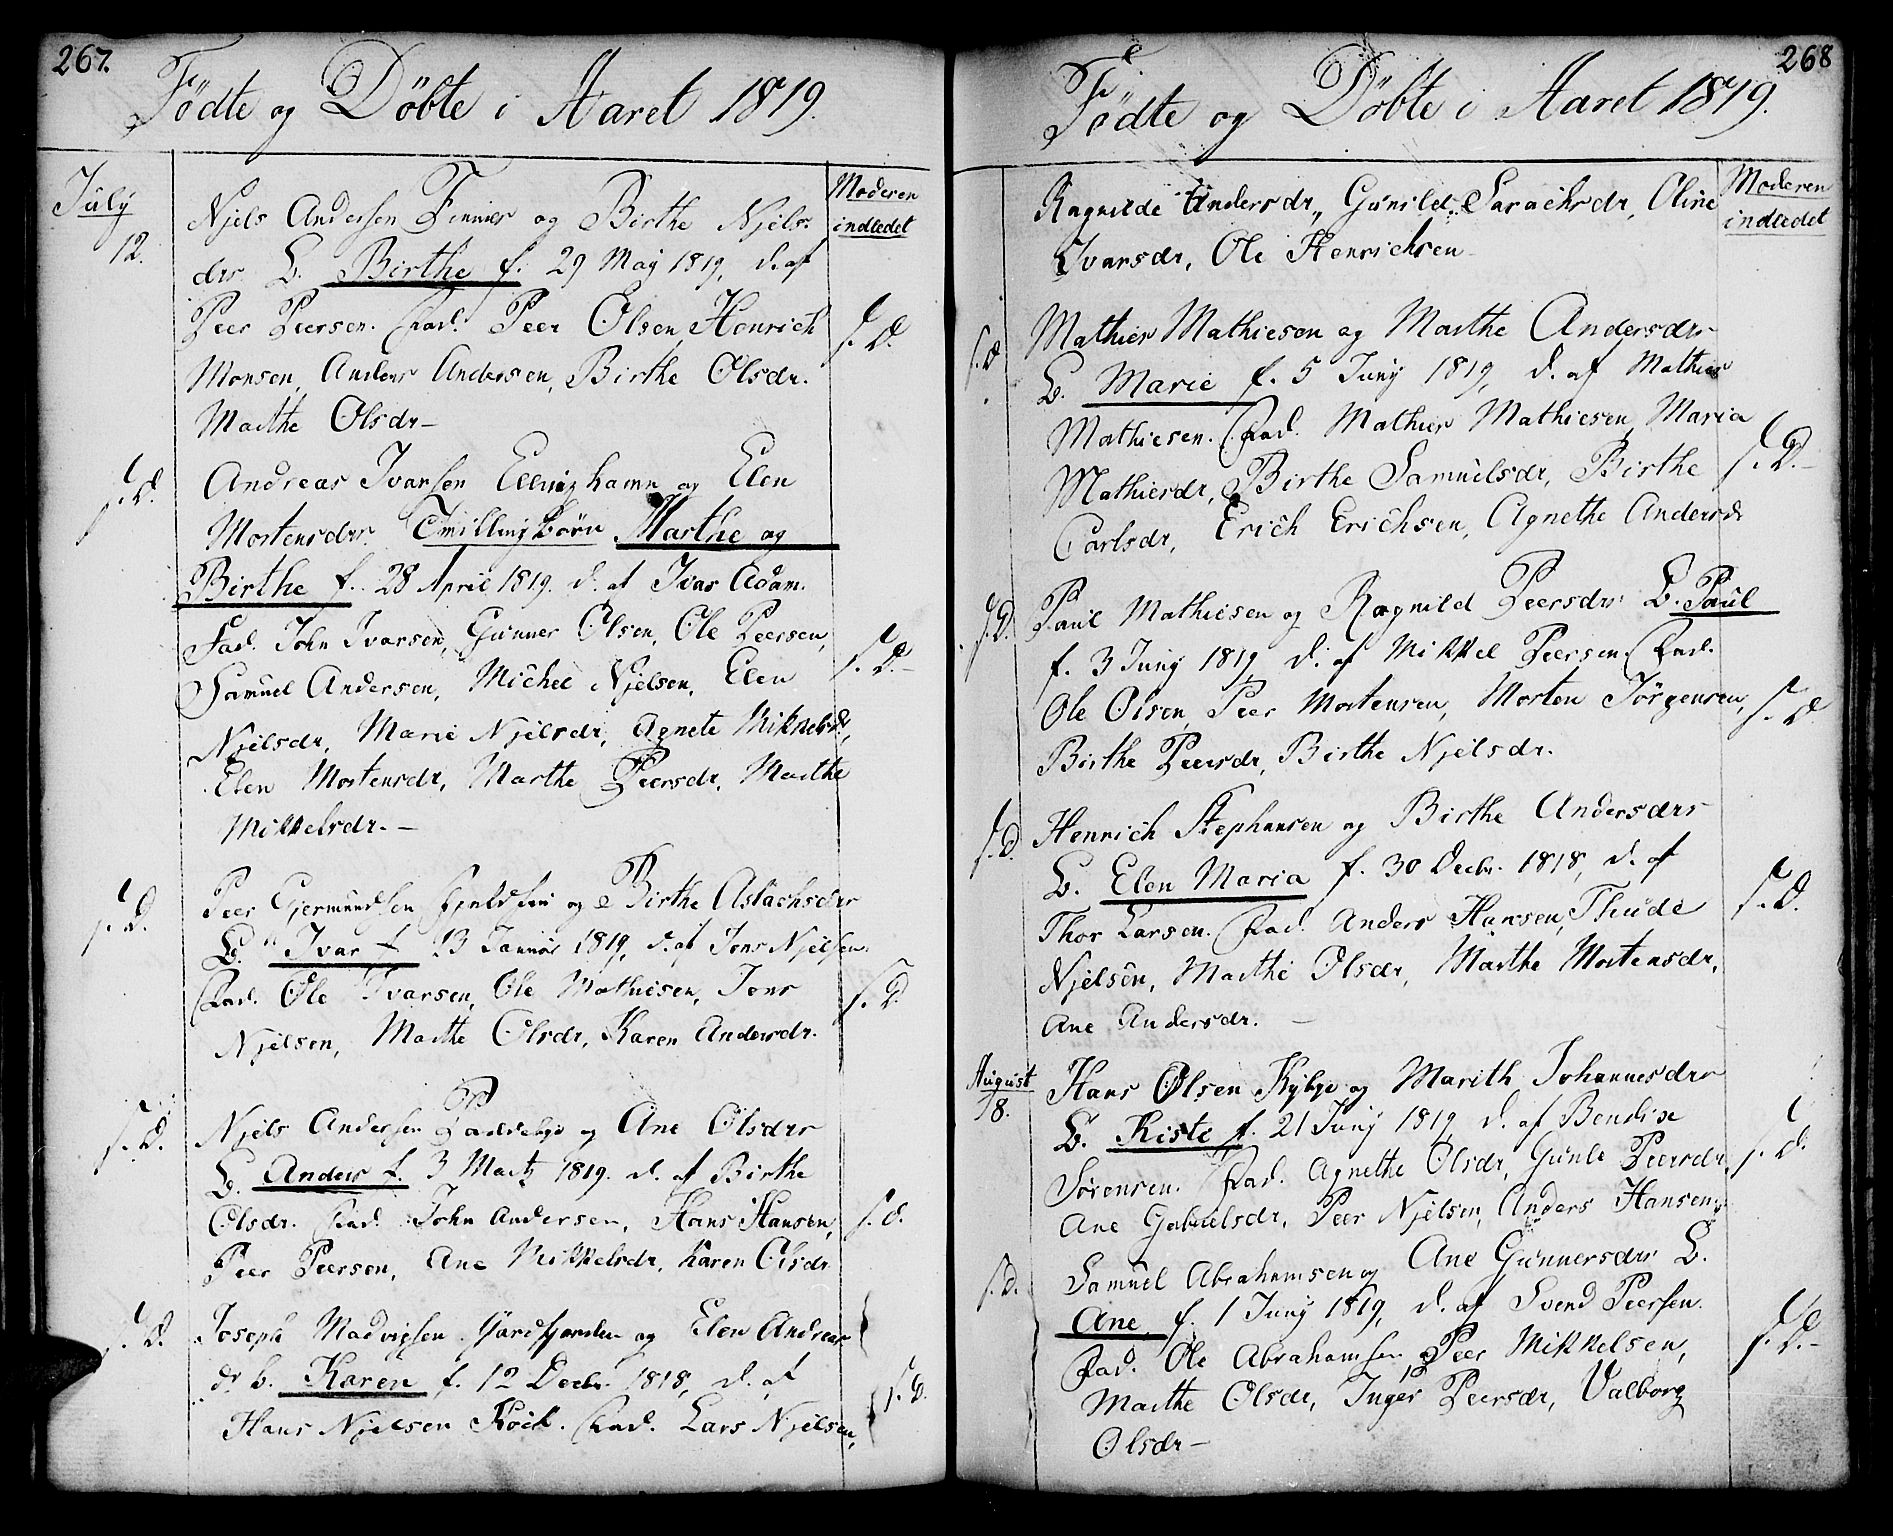 267.
Födte og Döbte i Aaret 1819.
July
12.
Moderen
indledet
Njels Andersen Finnes og Birthe Njels-
dtr B. Birthe f. 29 May 1819, d. af
Peer Peersen. Fad. Peer Olsen, Henrich
s. D.
Monsen, Anders Andersen, Birthe Olsdr.
Marthe Olsdr-
s. D. Andreas Ivarsen Ellinghamn og Elen
Mortensdtr. Tvillingbörn Marthe og
Birthe f. 28 April 1819. d. af Ivar Adam.
Fad. John Ivarsen, Gunner Olsen, Ole Peersen,
s. D-
Samuel Andersen, Michel Njelsen, Elen
Njelsdr, Marie Njelsdr, Agnete Mikkelsdr,
Elen Mortensdr, Marthe Peersdr, Marthe
Mikkelsdr.-
s. D. Peer Gjermundsen og Birthe Aslachsdtr
B. Ivar f. 13 Januar 1819, d. af Jens Njelsen.
Fad. Ole Ivarsen, Ole Mathiesen, Jens
s. D.
Njelsen, Marthe Olsdr, Karen Andersdr.
s. D. Njels Andersen og Ane Olsdtr
B. Anders f. 3 Martz 1819. d. af Birthe
Olsdr. Fad. John Andersen, Hans Hansen,
s. d.
Peer Peersen, Ane Mikkelsdr, Karen Olsdr
s. D. Joseph Madvigsen og Elen Andreas
dr b. Karen f. 12 Decbr. 1818, d. af
s. D.
Hans Njelsen Röik. Fad. Lars Njelsen,
268
Födte og Döbte i Aaret 1819.
Moderen
indledet
Ragnilde Andersdr, Gunild Sarachsdr, Oline
Ivarsdr, Ole Henrichsen-
s. d Mathies Mathiesen og Marthe Andersdtr
B. Marie f. 5 Juny 1819, d. af Mathias
Mathiesen. Fad. Mathies Mathiesen, Maria
s. D.-
Mathiesdr, Birthe Samuelsdr, Birthe
Carlsdr, Erich Erichsen, Agnethe Andersdr
s. D. Paul Mathiesen og Ragnild Peersdtr B. Paul
f. 3 Juny 1819, d. af Mikkel Peersen Fad.
Ole Olsen, Peer Mortensen, Morten Jörgensen,
s. D
Birthe Peersdr, Birthe Njelsdr.
s. d. Henrich Stephansen og Birthe Andersdtr
B. Elen Maria f. 30 Decbr. 1818, d. af
s. D.
Thor Larsen. Fad. Anders Hansen, Thude
Njelsen, Marthe Olsdr, Marthe Mortensdr,
Ane Andersdr. -
August
18.
Hans Olsen Kybye og Marith Johannesdtr
B. Kiste f. 21 Juny 1819, d. af Bendixe
s. D.
Sörensen. Fad. Agnethe Olsdr, Gunle Peersdr,
Ane Gabrielsdr, Peer Njelsen, Anders Hansen,
s. d. Samuel Abrahamsen og Ane Gunnersdtr B.
Ane f. 1 Juny 1819, d. af Svend Peersen.
s. D.-
Fad. Ole Abrahamsen, Peer Mikkelsen,
Marthe Olsdr, Inger Peersdr, Valborg
Olsdr-